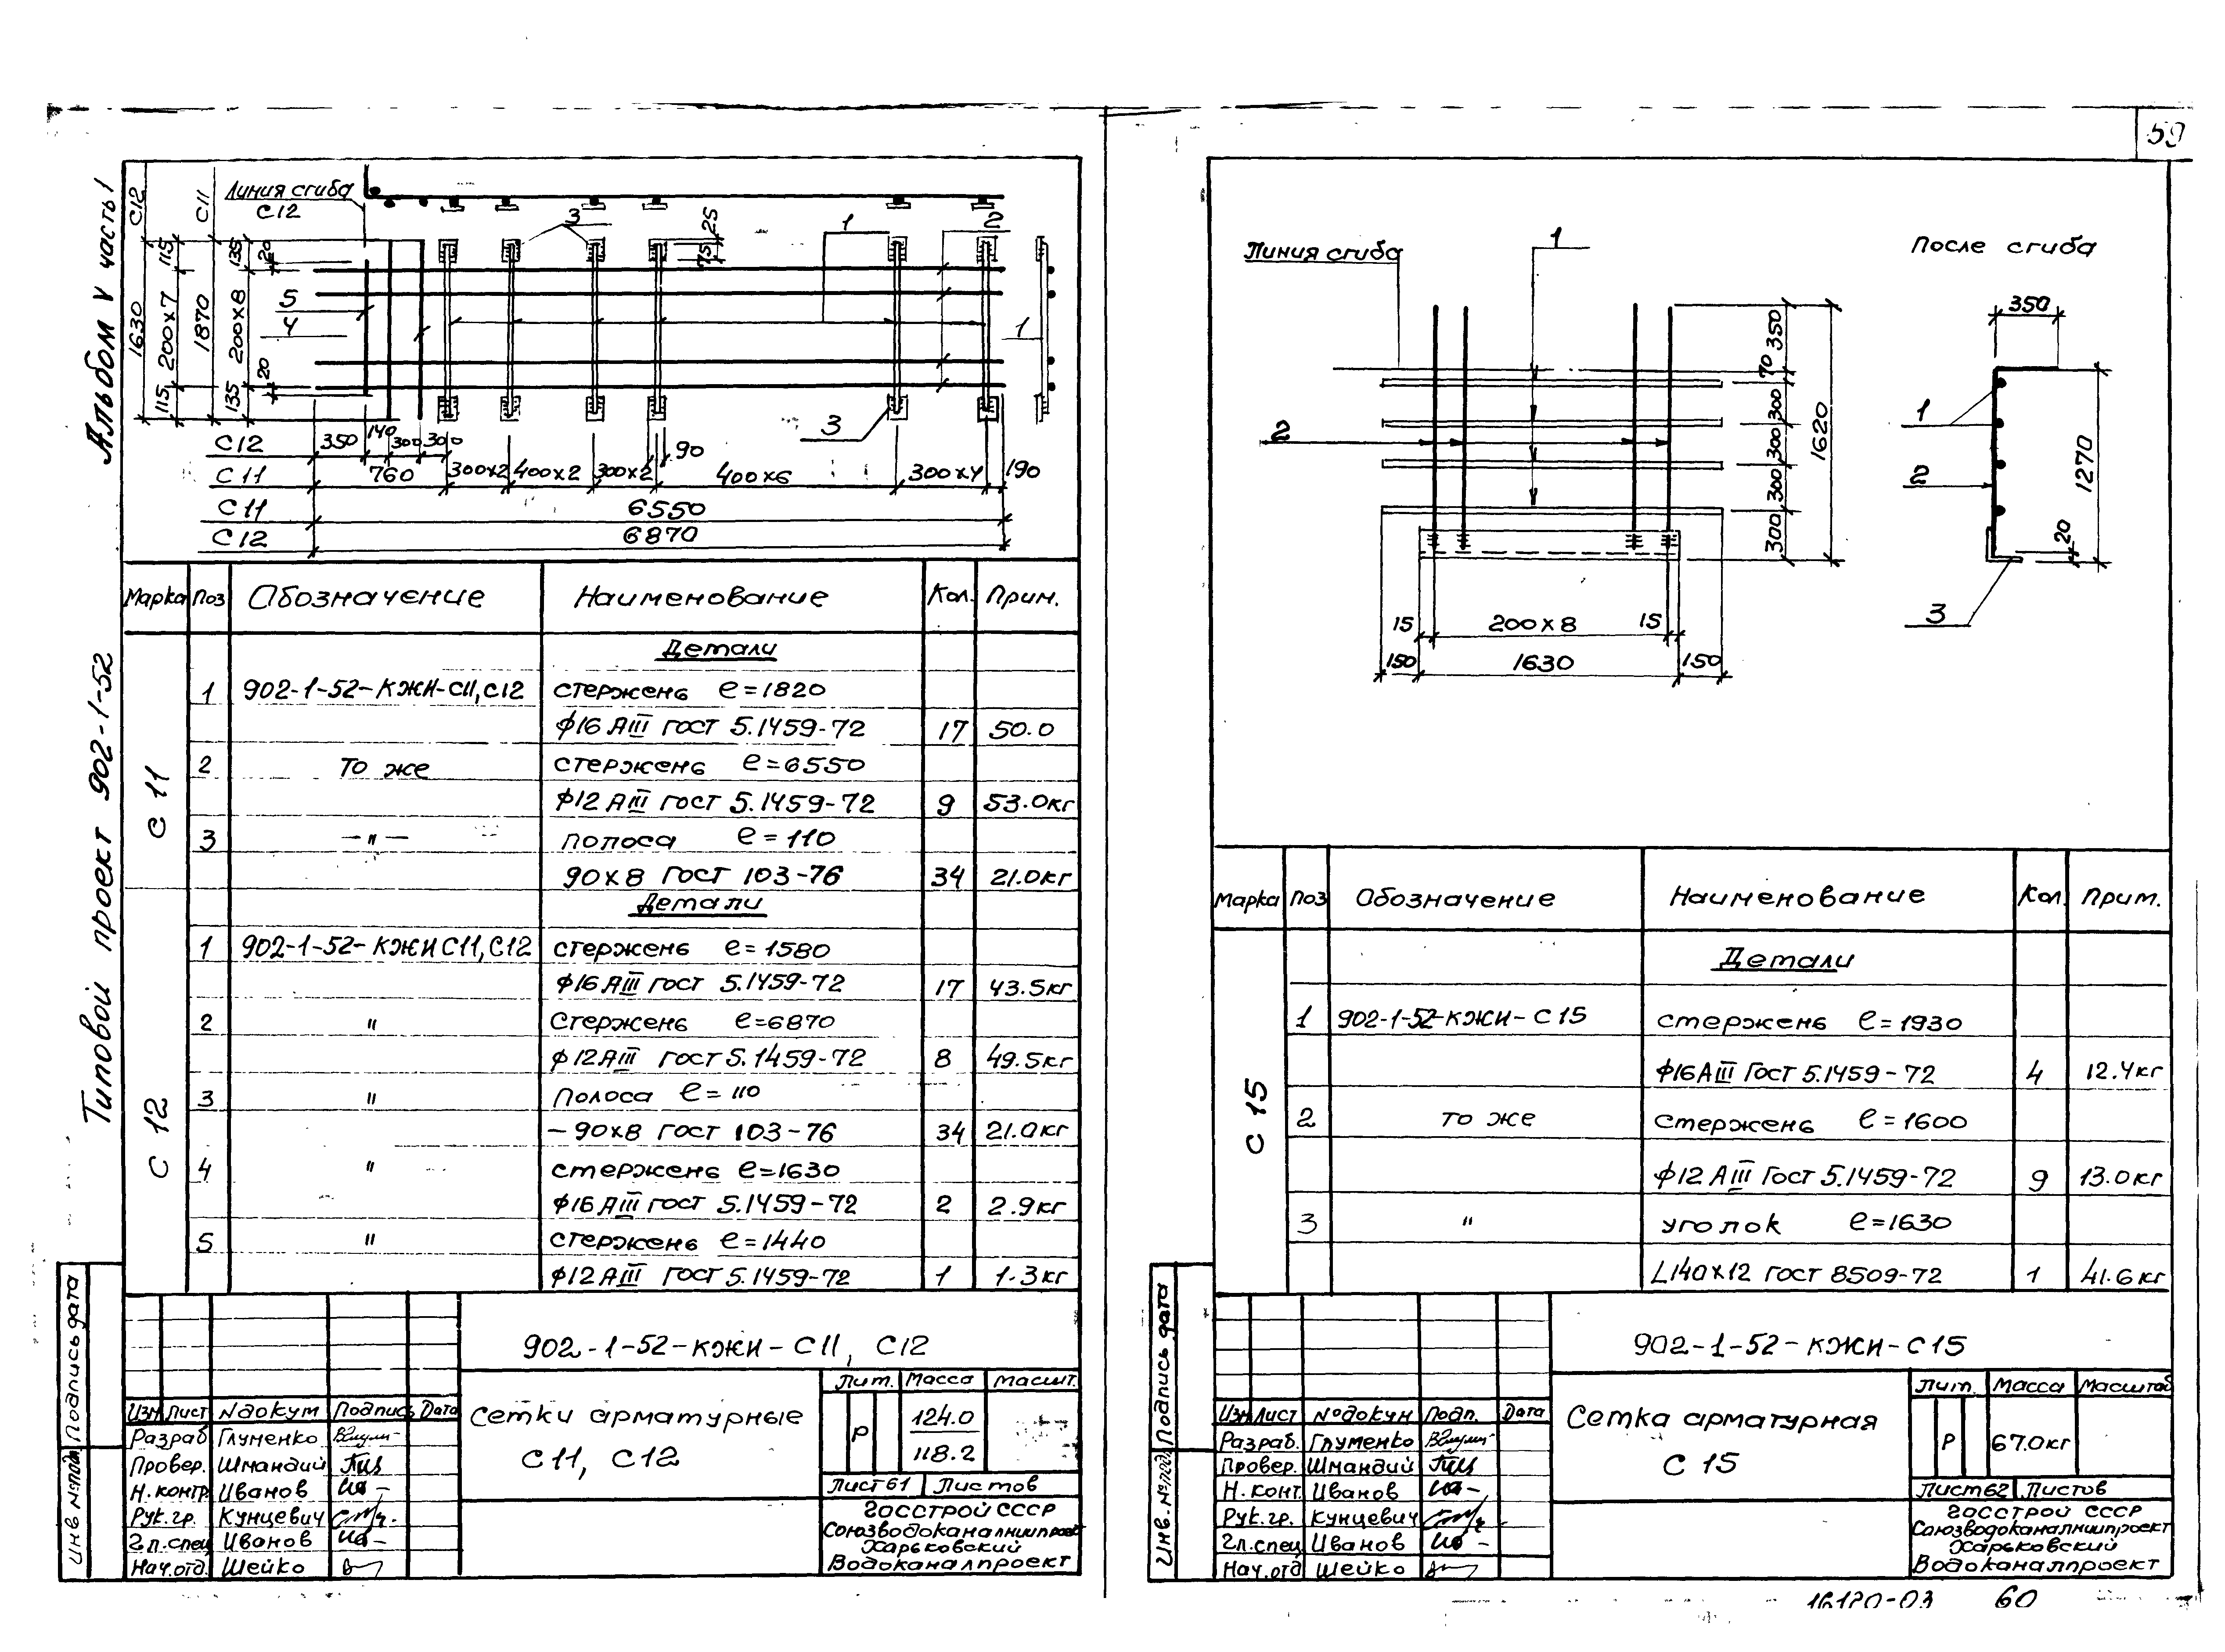 59
Альбом V часть 1
Типовой проект 902-1-52
Инв № подл. Подпись дата
Линия сгиба
С12
С12
С11
1630
115
200х7
115
1870
135
200х8
135
20
20
5
4
3
75
25
1
2
1
3
С12 350 140 300 300
90
С11 760 300х2 400х2 300х2 400х6 300х4 190
С11 6550
С12 6870
Марка Поз Обозначение Наименование Кол. Прим.
С 11
Детали
1 902-1-52-КЖИ-С11,С12 стержень ℓ=1820
ф16 АIII ГОСТ 5.1459-72 17 50.0
2 То же стержень ℓ=6550
ф12 АIII ГОСТ 5.1459-72 9 53.0кг
3 —"— полоса ℓ=110
90х8 ГОСТ 103-76 34 21.0кг
С 12
Детали
1 902-1-52-КЖИ С11,С12 стержень ℓ=1580
ф16 АIII ГОСТ 5.1459-72 17 43.5кг
2 " Стержень ℓ=6870
ф12АIII ГОСТ 5.1459-72 8 49.5кг
3 " Полоса ℓ=110
-90х8 ГОСТ 103-76 34 21.0кг
4 " стержень ℓ=1630
ф16 АIII ГОСТ 5.1459-72 2 2.9кг
5 " стержень ℓ=1440
ф12АIII ГОСТ 5.1459-72 1 1.3кг
902-1-52-КЖИ-С11, С12
Изм Лист №докум Подпись Дата
Разраб Глуменко
Провер. Шмандий
Н.контр. Иванов
Рук.гр. Кунцевич
Гл.спец Иванов
Нач.отд. Шейко
Сетки арматурные
С11, С12
Лит. Масса Масшт.
Р 124.0
118.2
Лист 61 Листов
Госстрой СССР
Союзводоканалниипроект
Харьковский
Водоканалпроект
Линия сгиба
1
2
350
70
300
300
300
300
1620
15 200х8 15
150 1630 150
После сгиба
350
1
2
1270
20
3
Марка Поз Обозначение Наименование Кол. Прим.
С 15
Детали
1 902-1-52-КЖИ-С15 стержень ℓ=1930
ф16АIII ГОСТ 5.1459-72 4 12.4кг
2 То же стержень ℓ=1600
ф12 АIII ГОСТ 5.1459-72 9 13.0кг
3 " уголок ℓ=1630
L140х12 ГОСТ 8509-72 1 41.6кг
Инв. № подл. Подпись дата
902-1-52-КЖИ-С15
Изм Лист №докум Подп. Дата
Разраб. Глуменко
Провер. Шмандий
Н.конт. Иванов
Рук.гр. Кунцевич
Гл.спец Иванов
Нач.отд Шейко
Сетка арматурная
С 15
Лит. Масса Масштаб
Р 67.0кг
Лист 62 Листов
Госстрой СССР
Союзводоканалниипроект
Харьковский
Водоканалпроект
16120-03 60